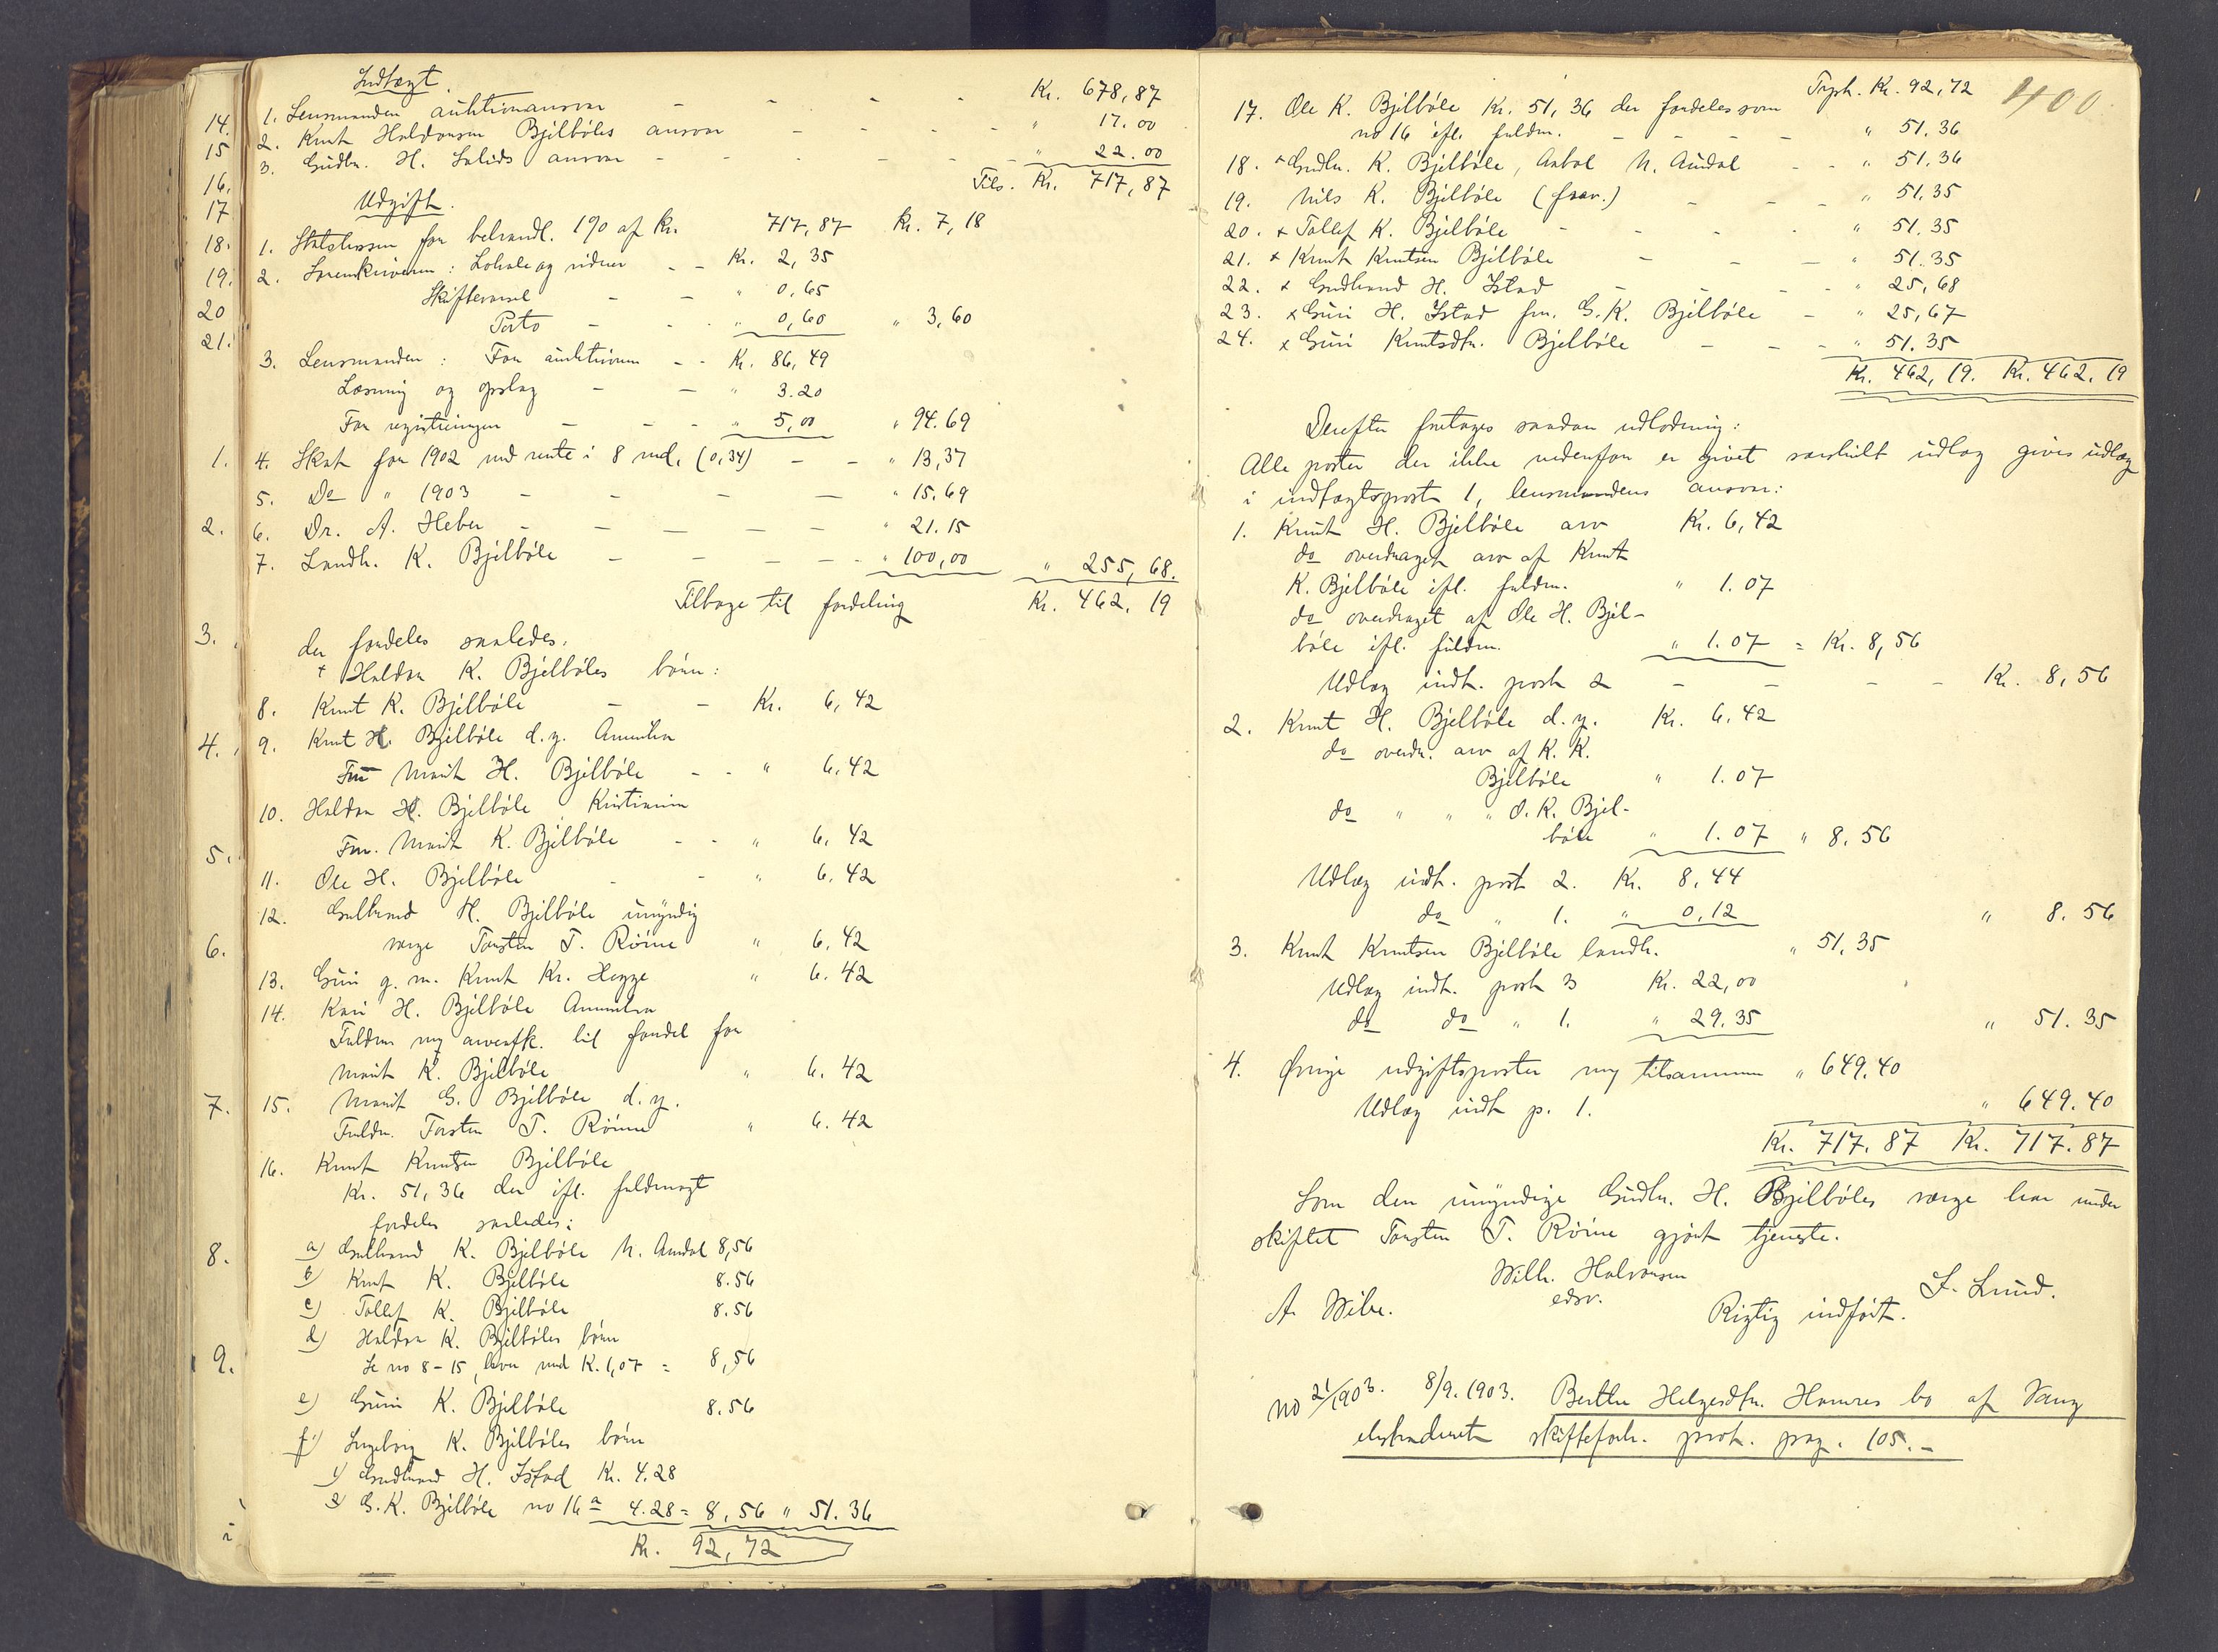 Indtægt.
1. Lensmanden auktionansvar - - - - Kr. 678,87
2. Knut Haldorsen Bjelbøles ansvar - - - - " 17.00
3. Gudbr. H. ansvar - - - - - " 22.00
Tils. Kr. 717,87
Udgift.
1. Statskassen for behandl. 1% af Kr. 717,87 Kr. 7,18
2. Sorenskriveren: Lokale og vidner - - Kr. 2,35
Skiftevarsel - - " 0,65
Porto - - - " 0,60 " 3,60
3. Lensmanden: For auktionen - - Kr. 86,49
Læsning og opslag - - " 3.20
For registreringen - - - " 5,00 " 94.69
4. Skat for 1902 med rente i 8 md. (0,34) - - " 13,37
5. Do " 1903 - - - - " 15.69
6. Dr. A. Heber - - - - - " 21.15
7. Landh. K. Bjelbøle - - - - - " 100,00 " 255,68.
Tilbage til fordeling Kr. 462.19
der fordeles saaledes:
+ Haldor K. Bjelbøles børn:
8. Knut K. Bjelbøle - - Kr. 6,42
9. Knut H. Bjelbøle d.y. Amerika
Fm Marit H. Bjelbøle - - " 6.42
10. Haldor H. Bjelbøle, Kristiania
Fm. Marit K. Bjelbøle - - " 6.42
11. Ole H. Bjelbøle - - " 6.42
12. Gulbrand H. Bjelbøle umyndig
værge Torsten T. Röine " 6.42
13. Guri g. m. Knut Kr. Hegge " 6.42
14. Kari H. Bjelbøle Amerika
Fuldm og arveafk. til fordel for
Marit K. Bjelbøle " 6.42
15. Marit G. Bjelbøle d.y.
Fuldm. Torsten T. Röine " 6.42
16. Knut Knutsen Bjelbøle
Kr. 51,36 der ifl. fuldmagt
fordeles saaledes:
a) Gulbrand K. Bjelbøle N. Aurdal 8,56
b) Knut K. Bjelbøle 8.56
c) Tollef K. Bjelbøle 8.56
d) Haldor K. Bjelbøles børn
Se no 8-15, hver med K. 1,07 = 8,56
e) Guri K. Bjelbøle 8.56
f) Ingeborg K. Bjelbøles børn
1) Gudbrand H. Ystad Kr. 4.28
2) G. K. Bjelbøle no 16 a 4.28 = 8,56 " 51.36
Kr. 92,72
14.
15
16.
17
18.
19.
20
21.
1.
2.
3.
4.
5.
6.
7.
8.
9.
400.
Trpt. Kr. 92,72
17. Ole K. Bjelbøle Kr. 51,36 der fordeles som
no 16 ifl. fuldm. - - - - " 51.36
18. + Gudbr. K. Bjelbøle, Anbol N. Aurdal - - " 51,36
19. Nils K. Bjelbøle (frav.) - - - " 51,35
20. + Tollef K. Bjelbøle - - - - " 51.35
21. + Knut Knutsen Bjelbøle - - - " 51.35
22. + Gudbrand H. Ystad - - - - " 25,68
23. + Guri H. Ystad fm. G. K. Bjelbøle - " 25,67
24. + Guri Knutsdtr. Bjelbøle - - - " 51.35
Kr. 462,19. Kr. 462.19
Derefter foretages saadan udlodning:
Alle poster der ikke nedenfor er givet særskilt udlæg gives udlæg
i indtægtspost 1, lensmandens ansvar:
1. Knut H. Bjelbøle arv Kr. 6,42
do overdraget arv af Knut
K. Bjelbøle ifl. fuldm. " 1.07
do overdraget af Ole H. Bjel-
bøle ifl. fuldm. " 1.07 = Kr. 8,56
Udlæg indt. post 2 - - - - Kr. 8,56
2. Knut H. Bjelbøle d.y. Kr. 6.42
do overdr. arv af K. K.
Bjelbøle " 1.07
do " " " O. K. Bjel-
bøle " 1.07 " 8.56
Udlæg indt. post 2. Kr. 8,44
do " 1. " 0,12 " 8.56
3. Knut Knutsen Bjelbøle landh. " 51,35
Udlæg indt. post 3 Kr. 22,00
do do " 1. " 29.35 " 51.35
4. Øvrige udgiftsposter og tilsammen " 649.40
Udlæg indt p. 1. " 649.40
Kr. 717.87 Kr. 717.87
Som den umyndige Gudbr. H. Bjelbøles værge har under
skiftet Torsten T. Röine gjort tjeneste.
Wilh. Halvorsen
edsv.
A. Wibe.
Rigtig indført. F. Lund.
no 21/1903. 8/9.1903. Berthe Helgesdtr. Hamres bo af Vang
ekstraderet skifteforh. prot. pag. 105.-